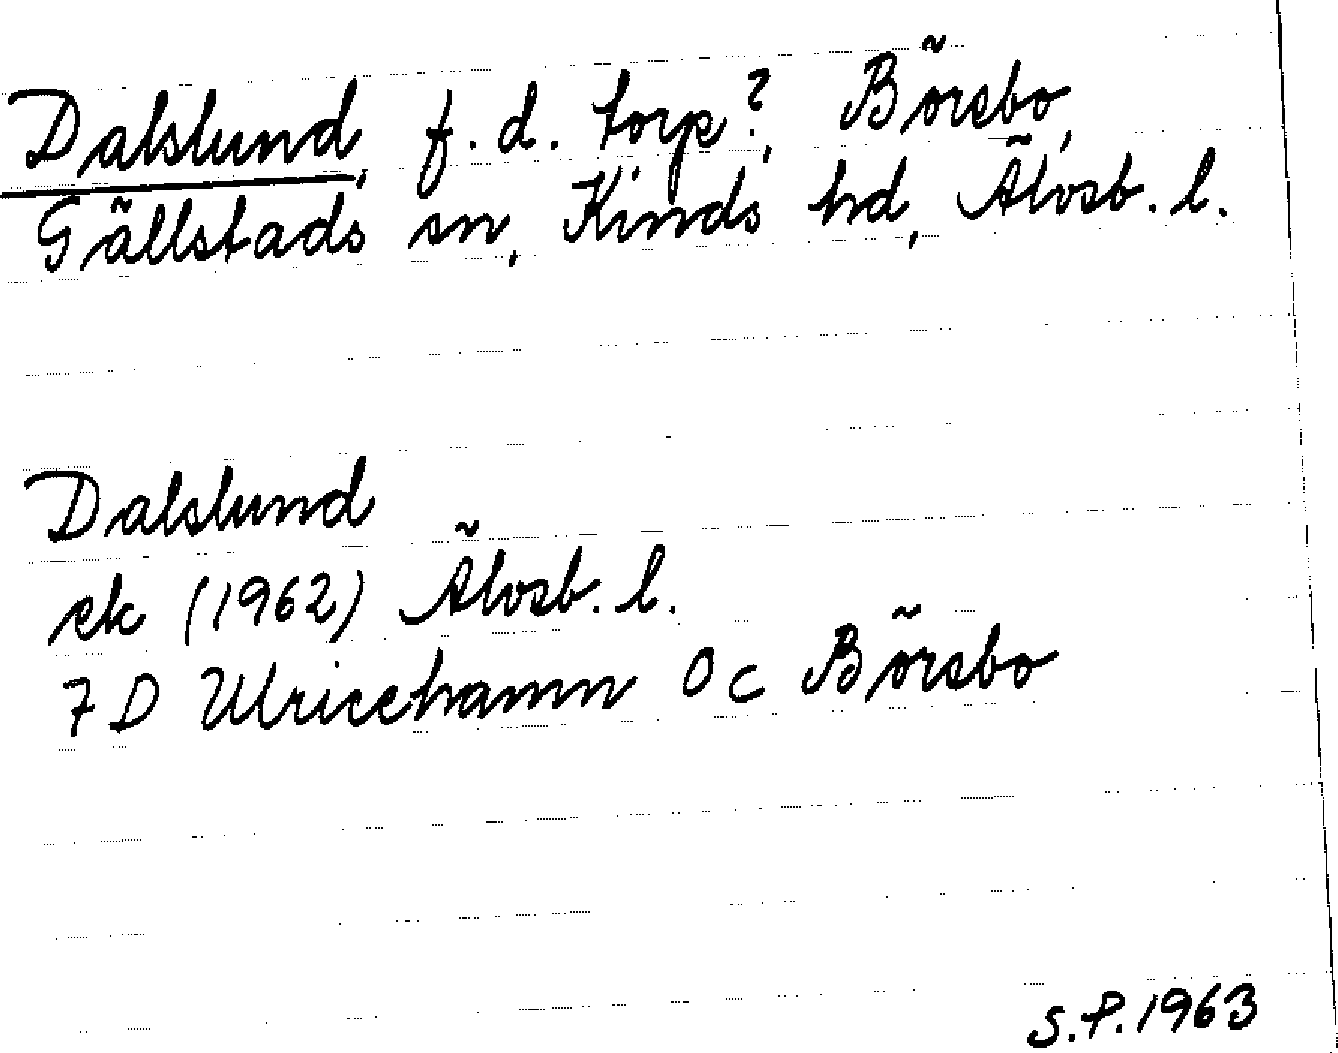 Dalslund, f.d. torp?, Börsbo,
Gällstads sn, Kinds hd, Älvsb. l.
Dalslund
ek (1962) Älvsb. l.
7D Ulricehamn 0c Börsbo
S.P. 1963